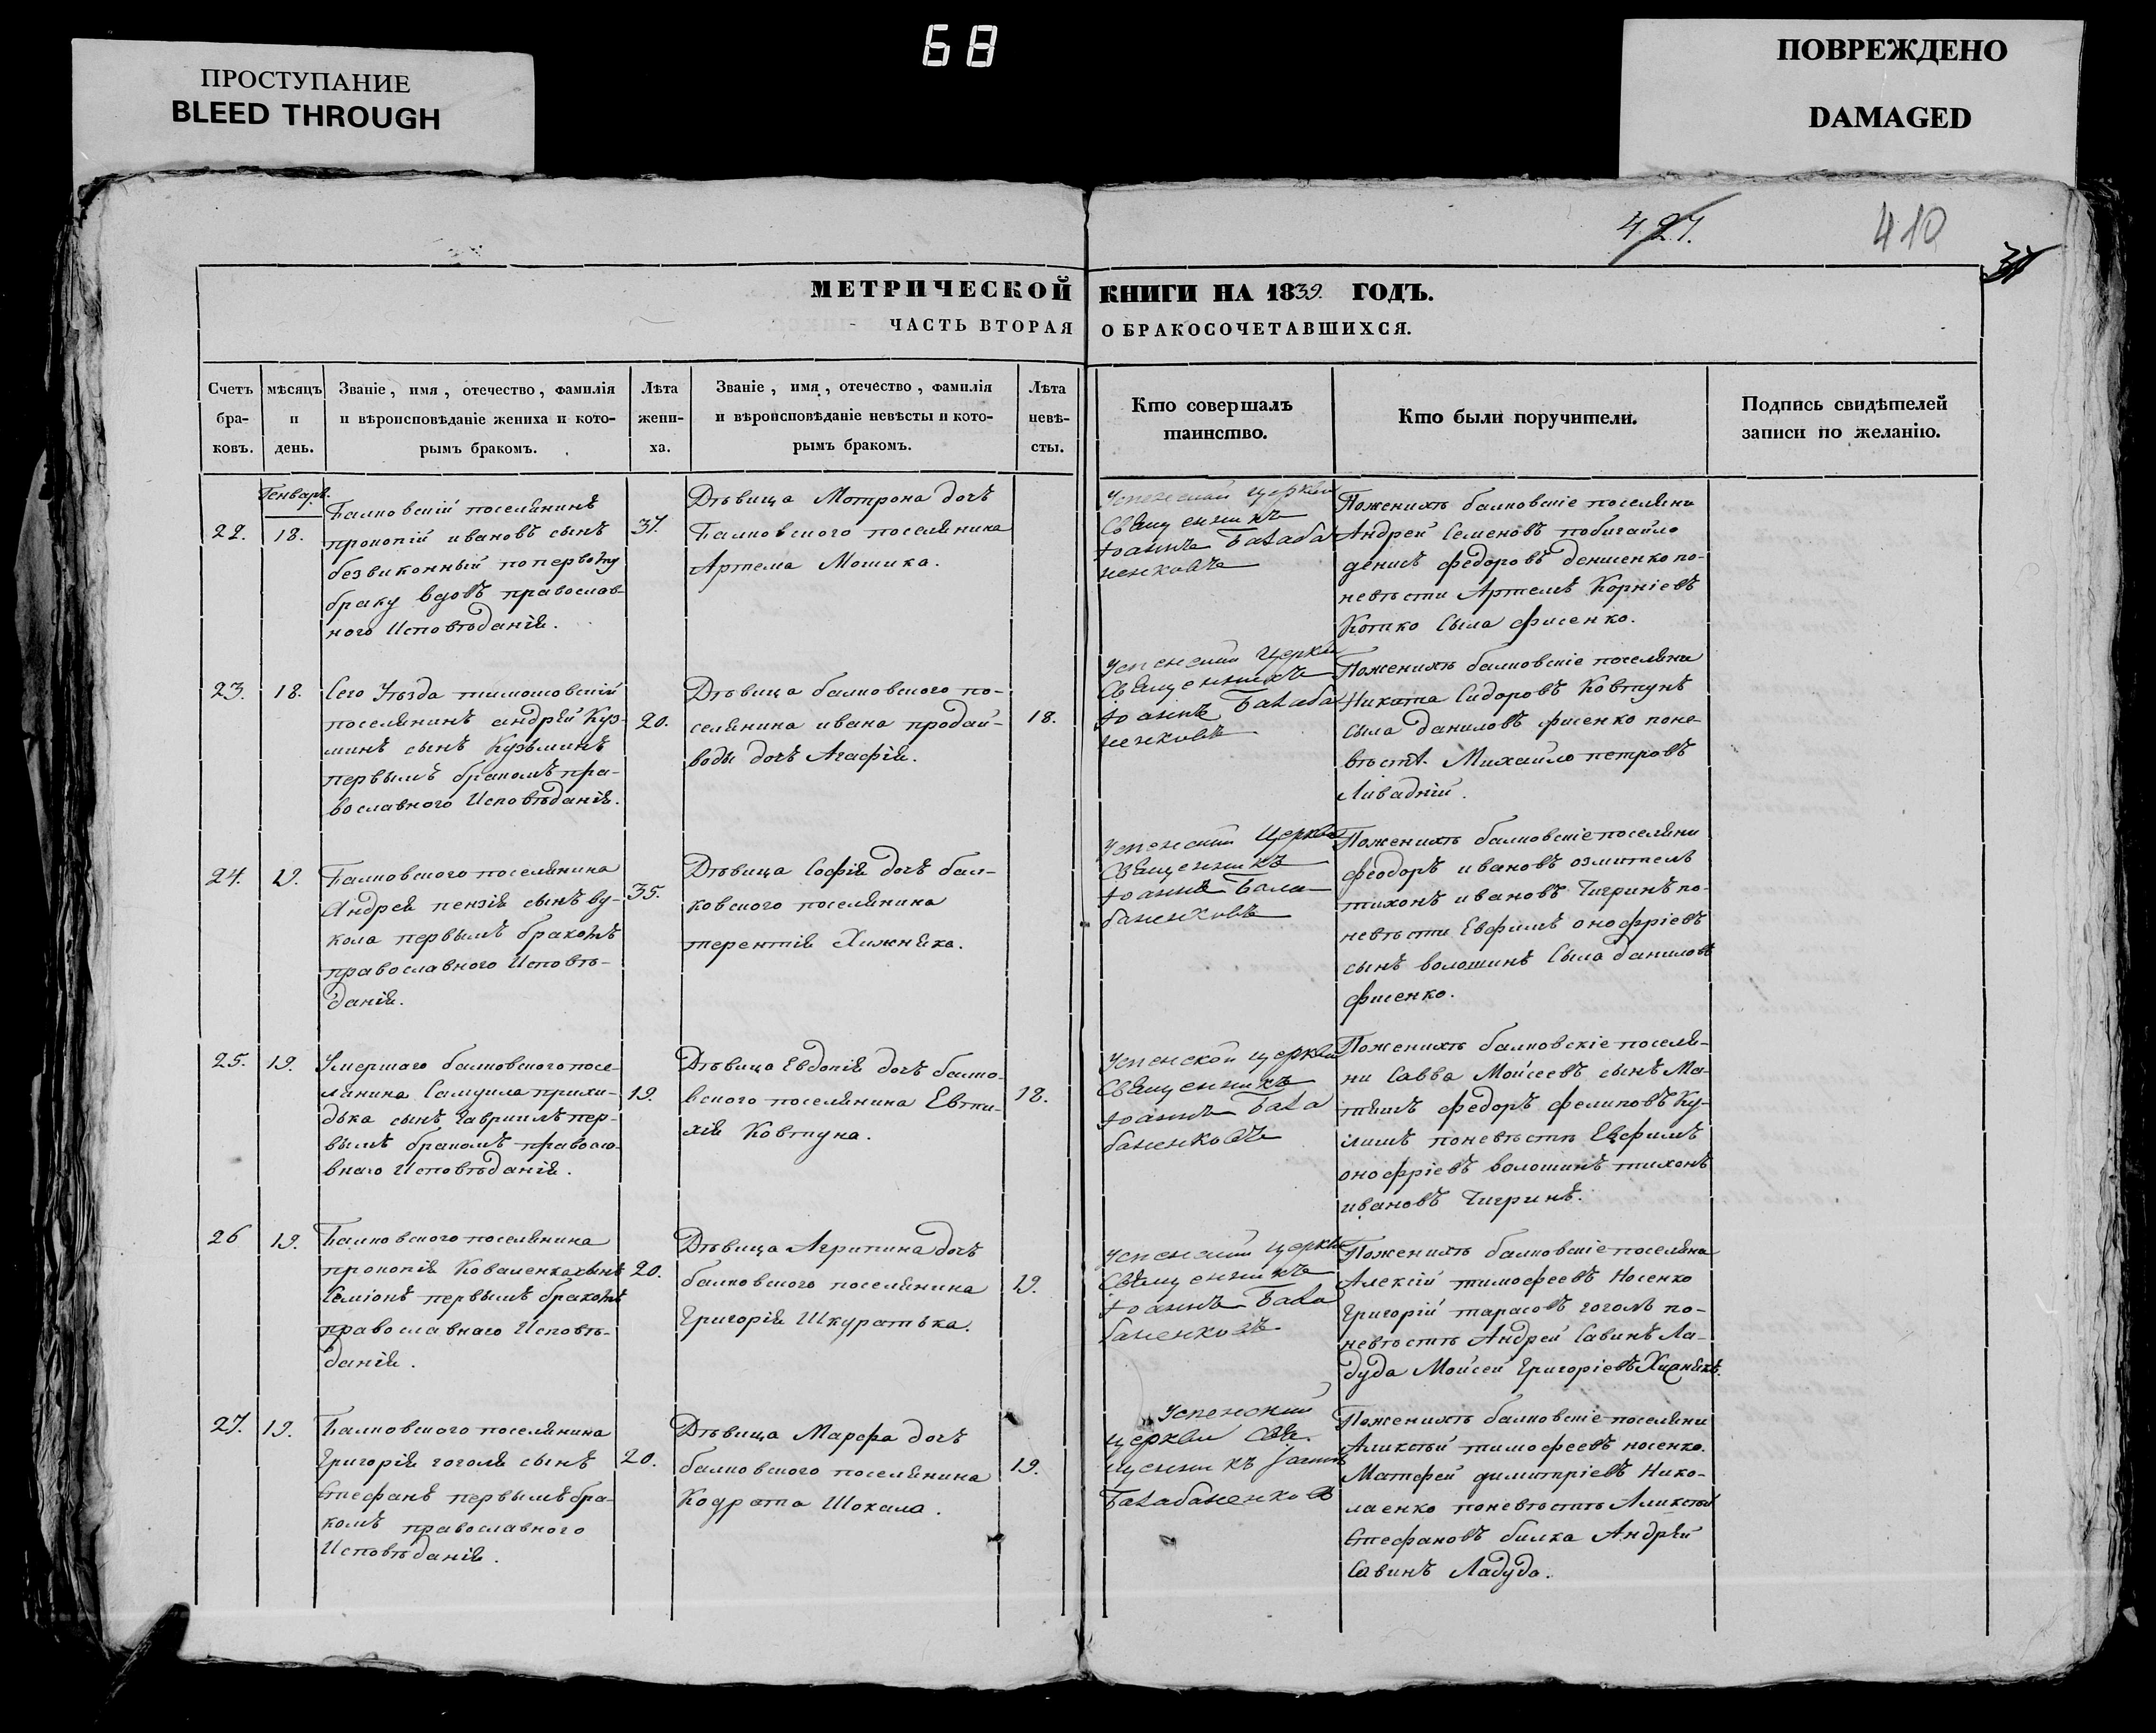 68
ПРОСТУПАНИЕ
BLEED THROUGH
ПОВРЕЖДЕНО
DAMAGED
427.
410
МЕТРИЧЕСКОЙ КНИГИ НА 1839. ГОДЪ.
ЧАСТЬ ВТОРАЯ О БРАКОСОЧЕТАВШИХСЯ.
Счетъ
бра-
ковъ.
мѣсяцъ
и
день.
Званіе, имя, отечество, фамилія
и вѣроисповѣданіе жениха и кото-
рымъ бракомъ.
Лѣта
жени-
ха.
Званіе, имя, отечество, фамилія
и вѣроисповѣданіе невѣсты и кото-
рымъ бракомъ.
Лѣта
невѣ-
сты.
Кто совершалъ
таинство.
Кто были поручители.
Подпись свидѣтелей
записи по желанію.
Генваря.
22.
18.
Балковскій поселянинъ
прокопій ивановъ сынъ
безвиконный по первому
браку вдовъ православ-
ного Исповѣданія.
37.
Дѣвица Мотрона дочъ
Балковского поселянина
Артема Мошика.
Успенской церкви
Священникъ
Іоаннъ Балаба
ненковъ
Поженихѣ балковскіе поселяни
Андрей Семеновъ побигайло
денисъ федоровъ денисенко по-
невѣсти Артемъ Корніевъ
Котко Сыла фисенко.
23.
18.
Сего Уѣзда тимошовскій
поселянинъ андрѣй Куз-
минъ сынъ Кузьминъ
первымъ бракомъ пра-
вославного Исповѣданія.
20.
Дѣвица балковского по-
селянина ивана продай-
воды дочъ Агафія.
18.
Успенской Церкви
Священникъ
Іоаннъ Балаба
ненковъ
Поженихѣ балковскіе поселяни
Никита Сидоровъ Ковтунъ
Сыла даниловъ фисенко поне-
вѣстѣ. Михайло петровъ
Ливадній.
24.
19.
Балковского поселянина
Андрея пензія сынъ ву-
кола первымъ бракомъ
православного Исповѣ-
данія.
35.
Дѣвица Софія дочъ бал-
ковского поселянина
терентія Хижняка.
Успенской Церкви
Священникъ
Іоаннъ Бала
баненковъ
Поженихѣ балковскіе поселяни
феодоръ ивановъ озмитель
тихонъ ивановъ Чигринъ по-
невѣсти Евфимъ онофріевъ
сынъ волошинъ Сыла даниловъ
фисенко.
25.
19.
Умершаго балковского посе-
лянина Самуила прихи-
дька сынъ Гавріилъ пер-
вымъ бракомъ правосла-
внаго Исповѣданія.
19.
Дѣвица Евдокія дочъ балко-
вского поселянина Евти-
хія Ковтуна.
18.
Успенской церкви
Священникъ
Іоаннъ Бала
баненковъ
Поженихѣ балковскіе поселя-
ни Савва Мойсеевъ сынъ Ма-
федоръ филиповъ Ку-
поневѣстѣ Евфимъ
онофріевъ волошинъ тихонъ
ивановъ Чигринъ.
26
19.
Балковского поселянина
прокопія Коваленка сынъ
Семіонъ первымъ бракомъ
православнаго Исповѣ-
данія.
20.
Дѣвица Агрипина дочъ
балковского поселянина
Григорія Шкуратька.
19.
Успенской церкви
Священникъ
Іоаннъ Бала
баненковъ
Поженихѣ балковскіе поселяна
Алексій тимофеевъ Носенко
Григорій тарасовъ гоголь по-
невѣстѣ Андрей Савинъ Ла-
дуда Мойсей Григоріевъ Хижнякъ.
27.
19.
Балковского поселянина
Григорія гоголя сынъ
Стефанъ первымъ бра-
комъ православного
Исповѣданія.
20.
Дѣвица Марфа дочъ
балковского поселянина
Кодрата Шокала.
19.
Успенской
церкви Свя-
щенникъ Іоаннъ
Балабаненковъ
Поженихѣ балковскіе поселяни
Аликсѣй тимофеевъ носенко.
Матфей димитріевъ Нико-
лаенко поневѣстѣ Аликсѣй
Стефановъ билка Андрѣй
Савинъ Ладуда.